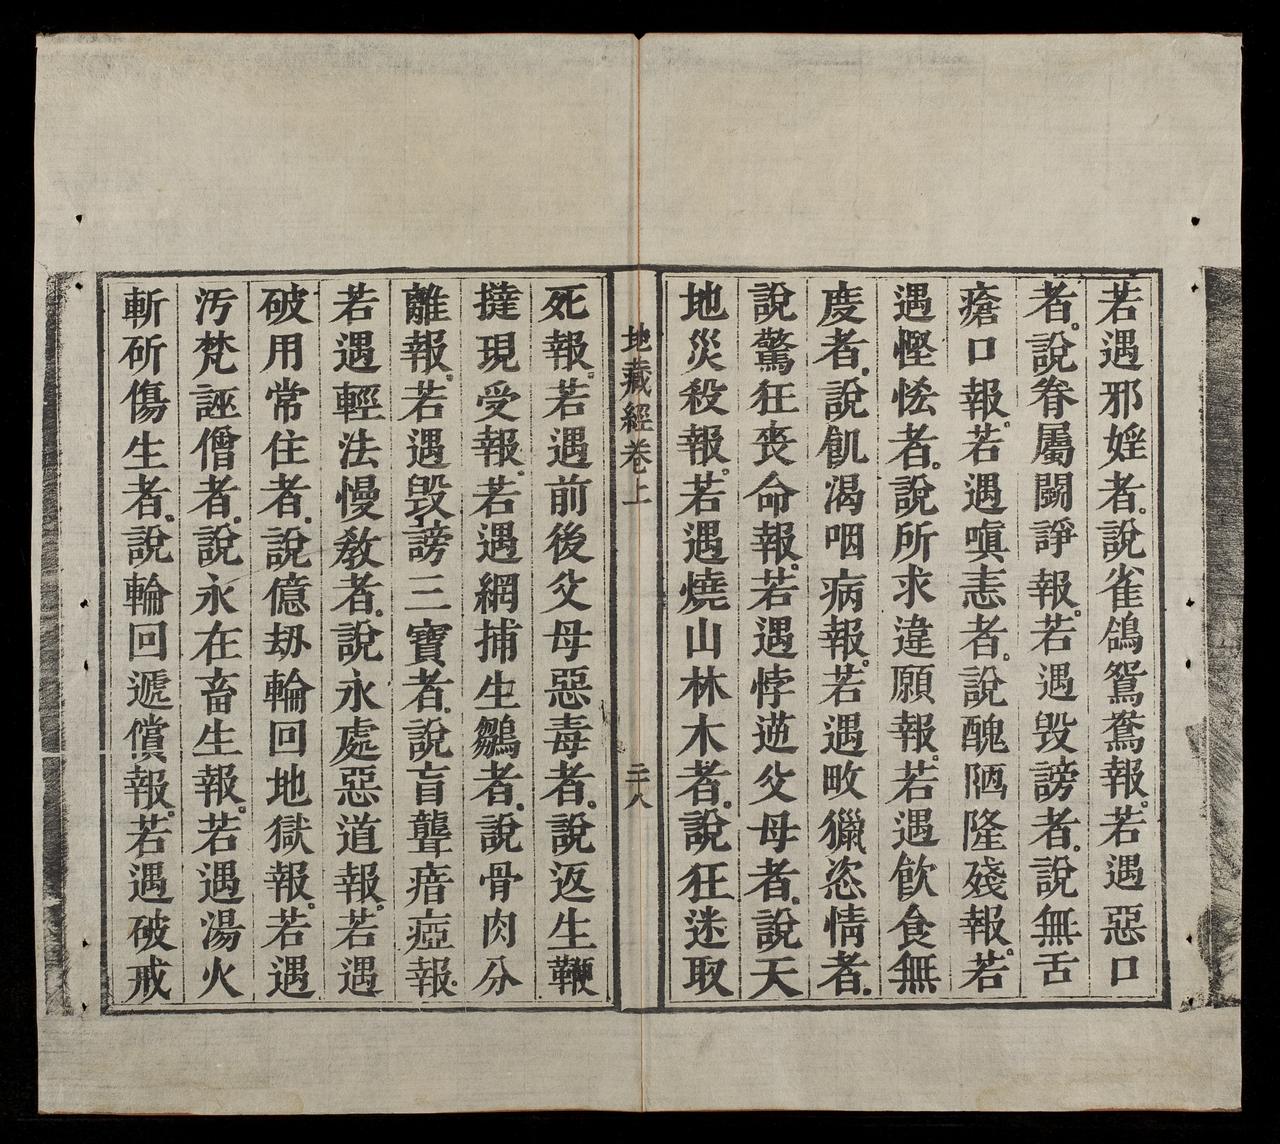 若遇邪婬者。說雀鴿鴛鴦報。若遇惡口
者。說眷屬鬬諍報。若遇毀謗者。說無舌
瘡口報。若遇嗔恚者。說醜陋隆殘報。若
遇慳恡者。說所求違願報。若遇飲食無
度者。說飢渴咽病報。若遇畋獵恣情者。
說驚狂喪命報。若遇悖逆父母者。說天
地災殺報。若遇燒山林木者。說狂迷取
地藏經卷上
二八
死報。若遇前後父母惡毒者。說返生鞭
撻現受報。若遇網捕生鶵者。說骨肉分
離報。若遇毀謗三寶者。說盲聾瘖瘂報。
若遇輕法慢教者。說永處惡道報。若遇
破用常住者。說億劫輪回地獄報。若遇
汚梵誣僧者。說永在畜生報。若遇湯火
斬斫傷生者。說輪回遞償報。若遇破戒